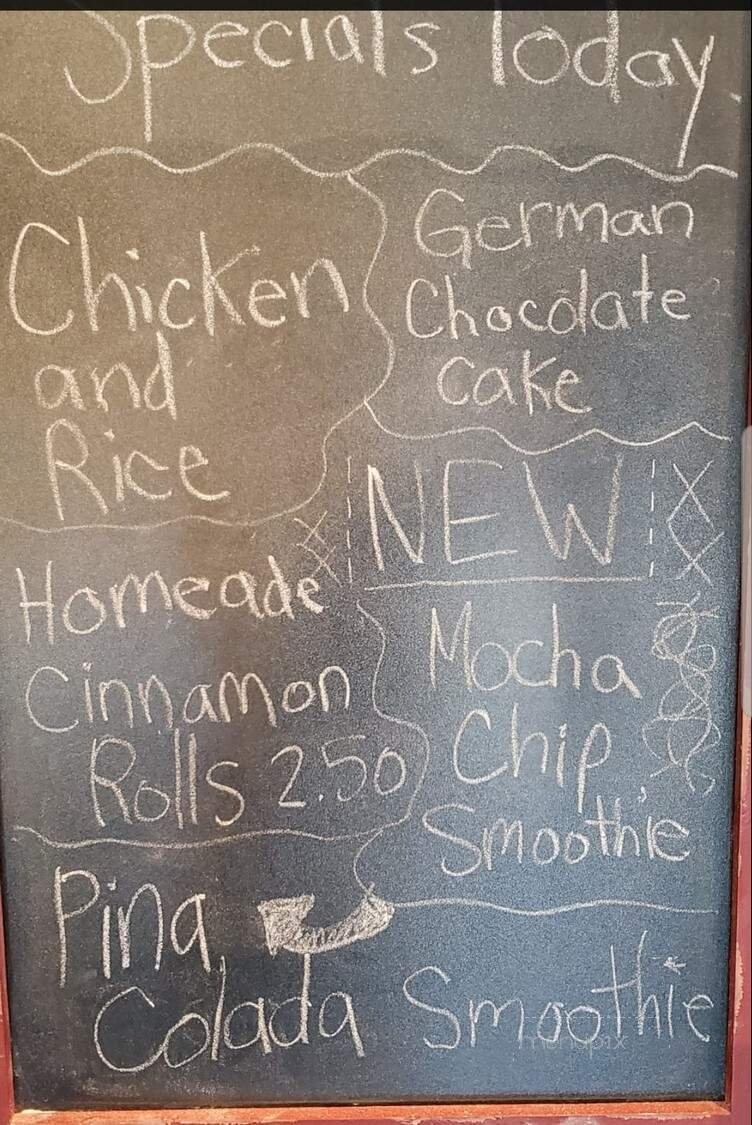 Specials Today
Chicken
and
Rice
German
Chocolate
Cake
Homeade
Cinnamon
Rolls 2.50
NEW
Mocha
Chip
Smoothie
Pina
Colada Smoothie
menupix